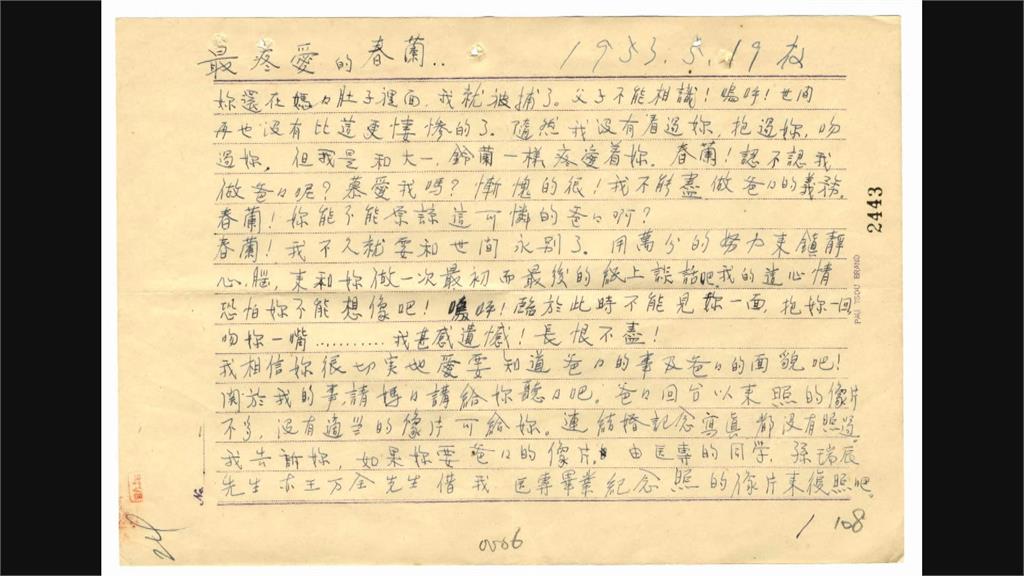 最疼愛的春蘭.. 1953.5.19夜
妳還在媽々肚子裡面,我就被捕了。父子不能相識!嗚呼!世間
再也没有比這更悽慘的了。隨然我没有看過妳,抱過妳,吻
過妳,但我是和大一、鈴蘭一樣疼愛着妳。春蘭!認不認我
做爸々呢?慕愛我嗎?慚愧的很!我不能盡做爸々的義務。
春蘭!妳能不能原諒這可憐的爸々啊?
春蘭!我不久就要和世間永別了。用萬分的努力來鎮靜
心腦,來和妳做一次最初而最後的紙上談話吧。我的這心情
恐怕妳不能想像吧!嗚呼!臨於此時不能見妳一面,抱妳一回
吻妳一嘴…………我甚感遺憾!長恨不盡!
我相信妳很切実地愛要知道爸々的事及爸々的面貌吧!
関於我的事請媽々講給妳聽々吧。爸々回台以來照的像片
不多,没有適当的像片可給妳。連結婚記念寫真都没有照過
我告訴妳,如果妳要爸々的像片,由医專的同学,孫瑞辰
先生亦王万全先生借我医專畢業紀念照的像片來復照吧。
2443
PAU TSOU BRAND
No
0006
1 108